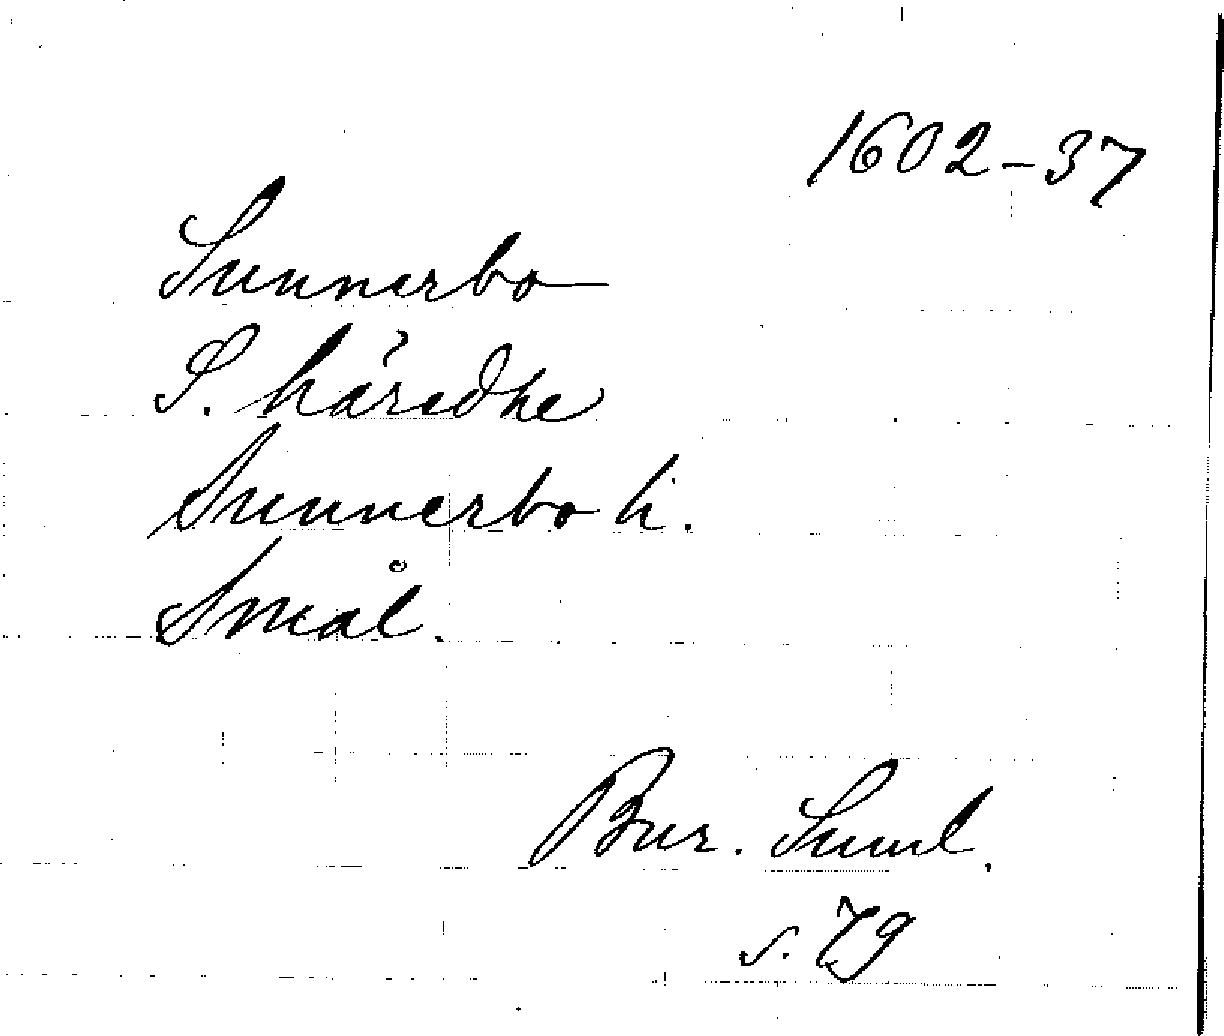 1602-37
Sunnerbo
S. häredhe
Sunnerbo h.
Smål.
Bur. Suml.
s. 79